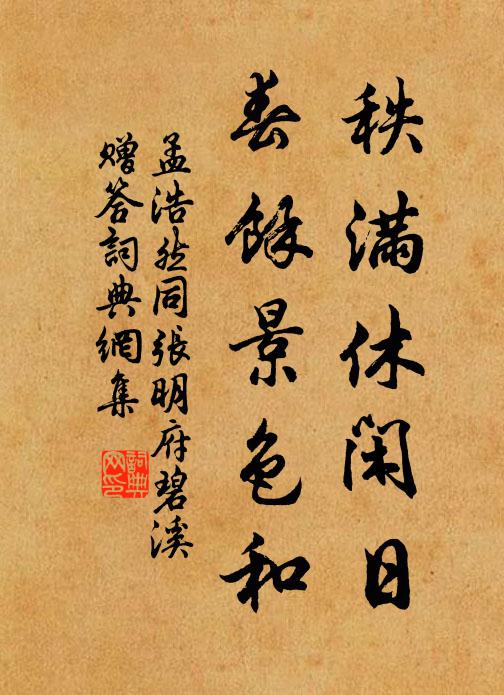 秩滿休閑日
春餘景色和
孟浩然同張明府碧溪
贈答詞典網集
詞典网印